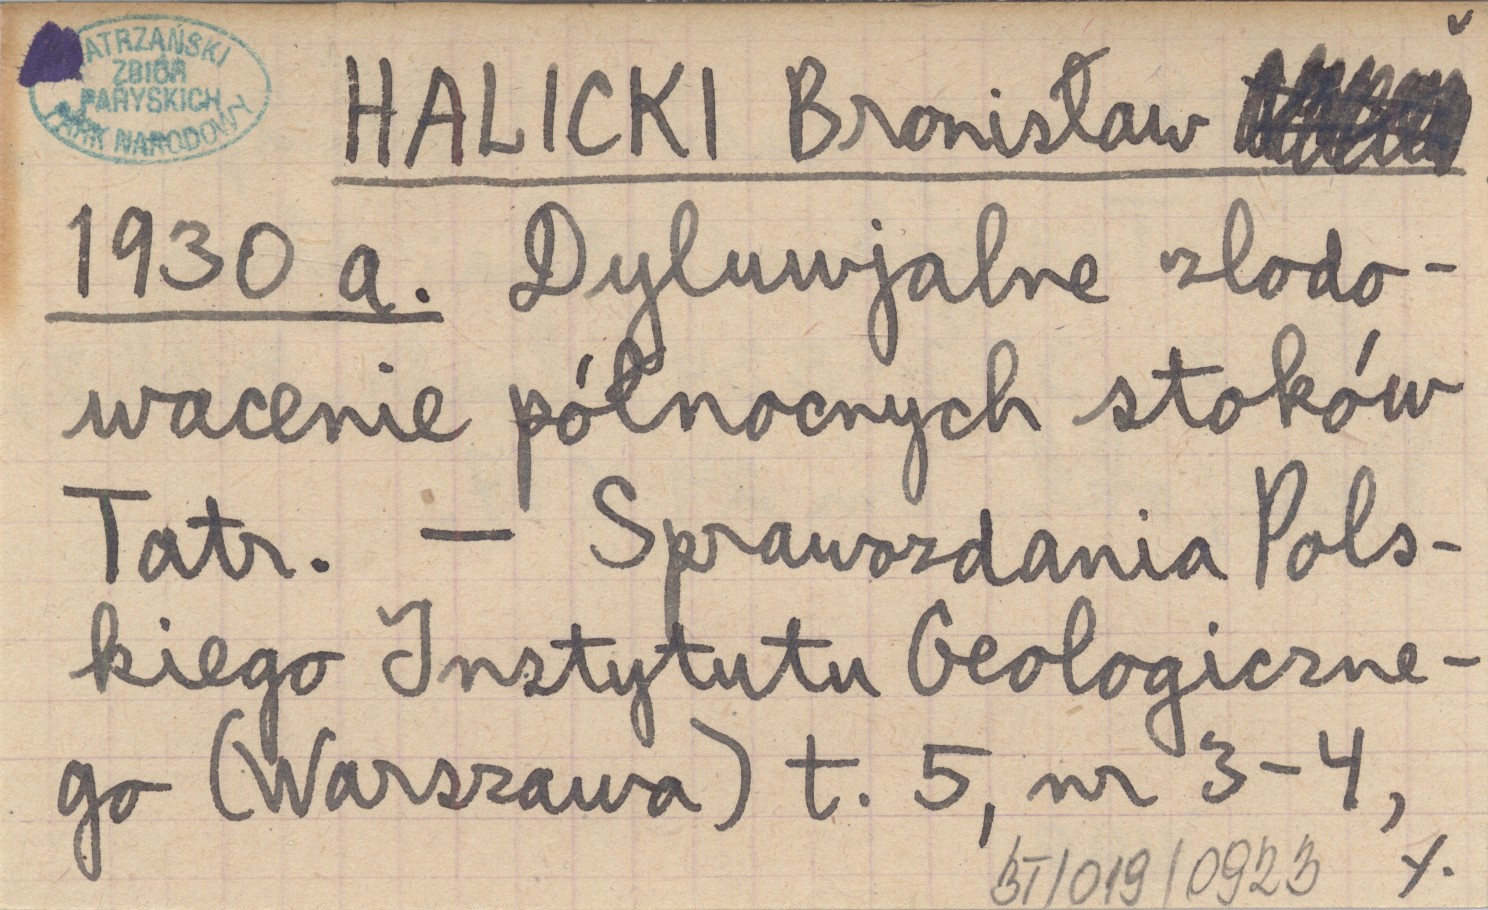 TATRZAŃSKI
ZBIÓR
PARYSKICH
PARK NARODOWY
HALICKI Bronisław
1930 a. Dyluwjalne zlodo-
wacenie północnych stoków
Tatr. — Sprawozdania Pols-
kiego Instytutu Geologiczne-
go (Warszawa) t. 5, nr 3-4,
BT/019/0923 y.